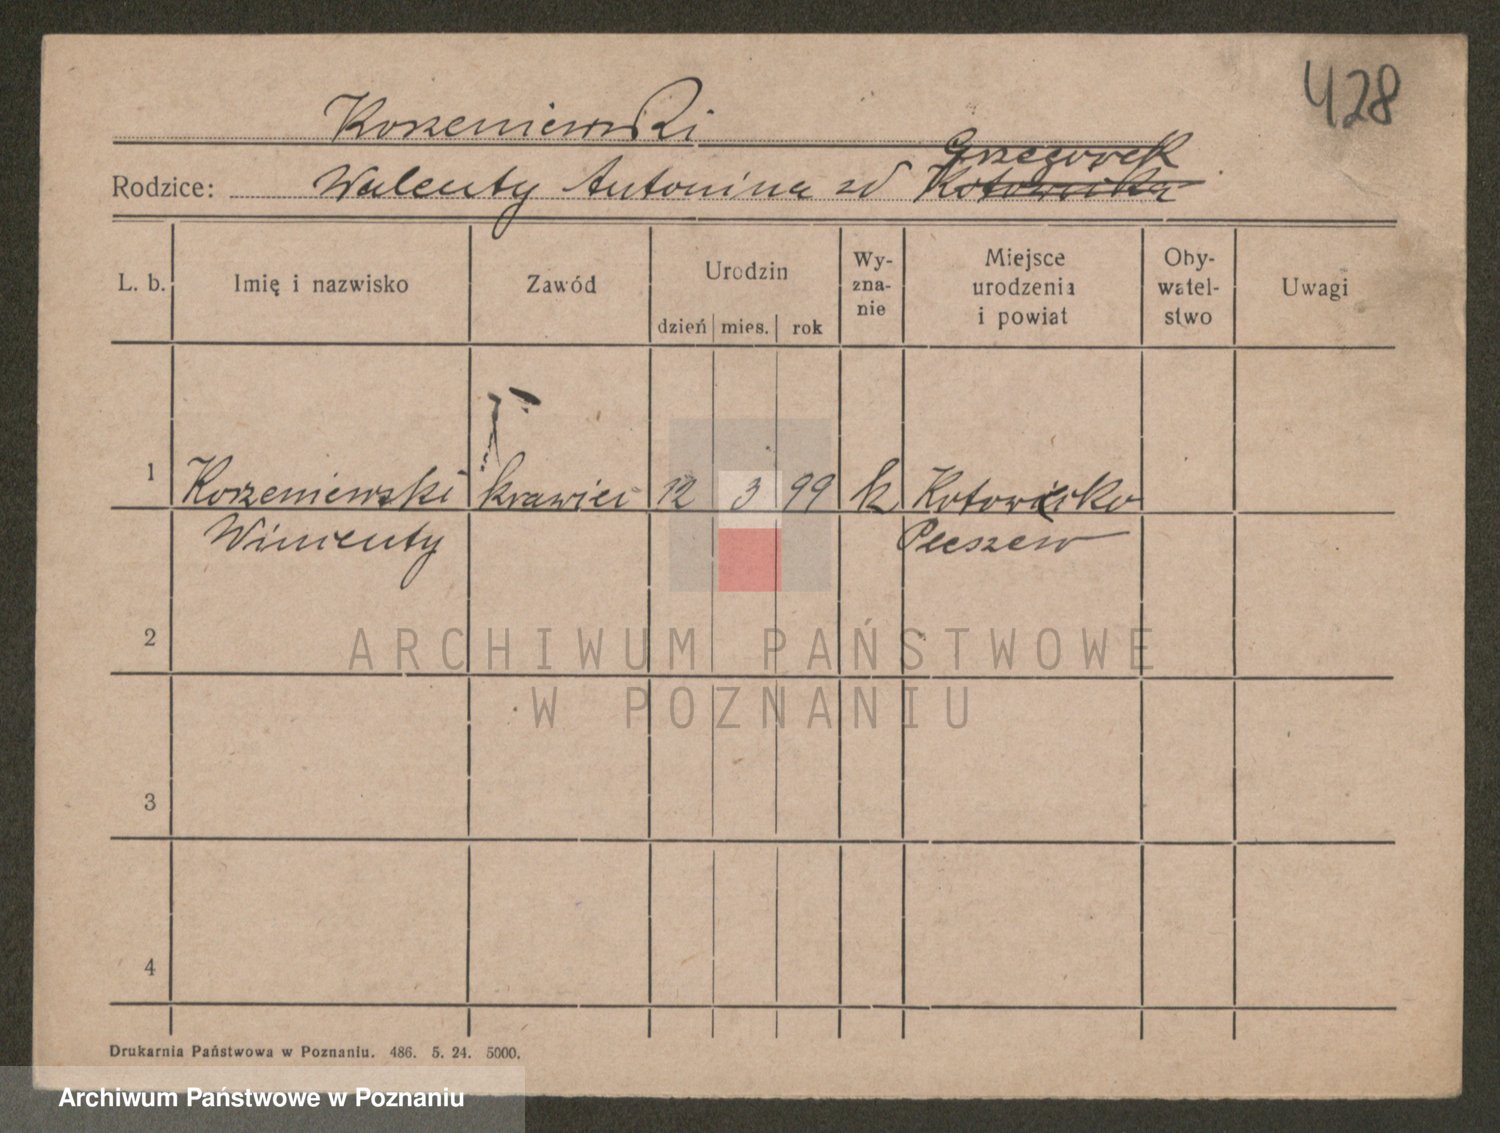 428
Korzeniewski
Grzegorek
Rodzice: Walenty Antonina zd Kotowska
L. b.
Imię i nazwisko
Zawód
Urodzin
dzień mies. rok
Wy-
zna-
nie
Miejsce
urodzenia
i powiat
Oby-
watel-
stwo
Uwagi
1 Korzeniewski krawiec 12 3 99 k Kotowiecko
Wincenty Pleszew
2
3
4
ARCHIWUM PAŃSTWOWE
W POZNANIU
Drukarnia Państwowa w Poznaniu. 486. 5. 24. 5000.
Archiwum Państwowe w Poznaniu